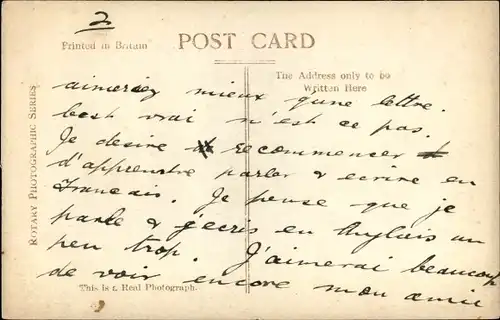 2
Printed in Britain
POST CARD
The Address only to be
Written Here
ROTARY PHOTOGRAPHIC SERIES
aimeriez mieux qu'une lettre.
best vrai n'est ce pas.
Je desire recommencer
d'apprendre parler & ecrire en
Francais. Je pense que je
parle & j'ecris en Anglais un
peu trop. J'aimerai beaucoup
de voir encore mon amie
This is a Real Photograph.